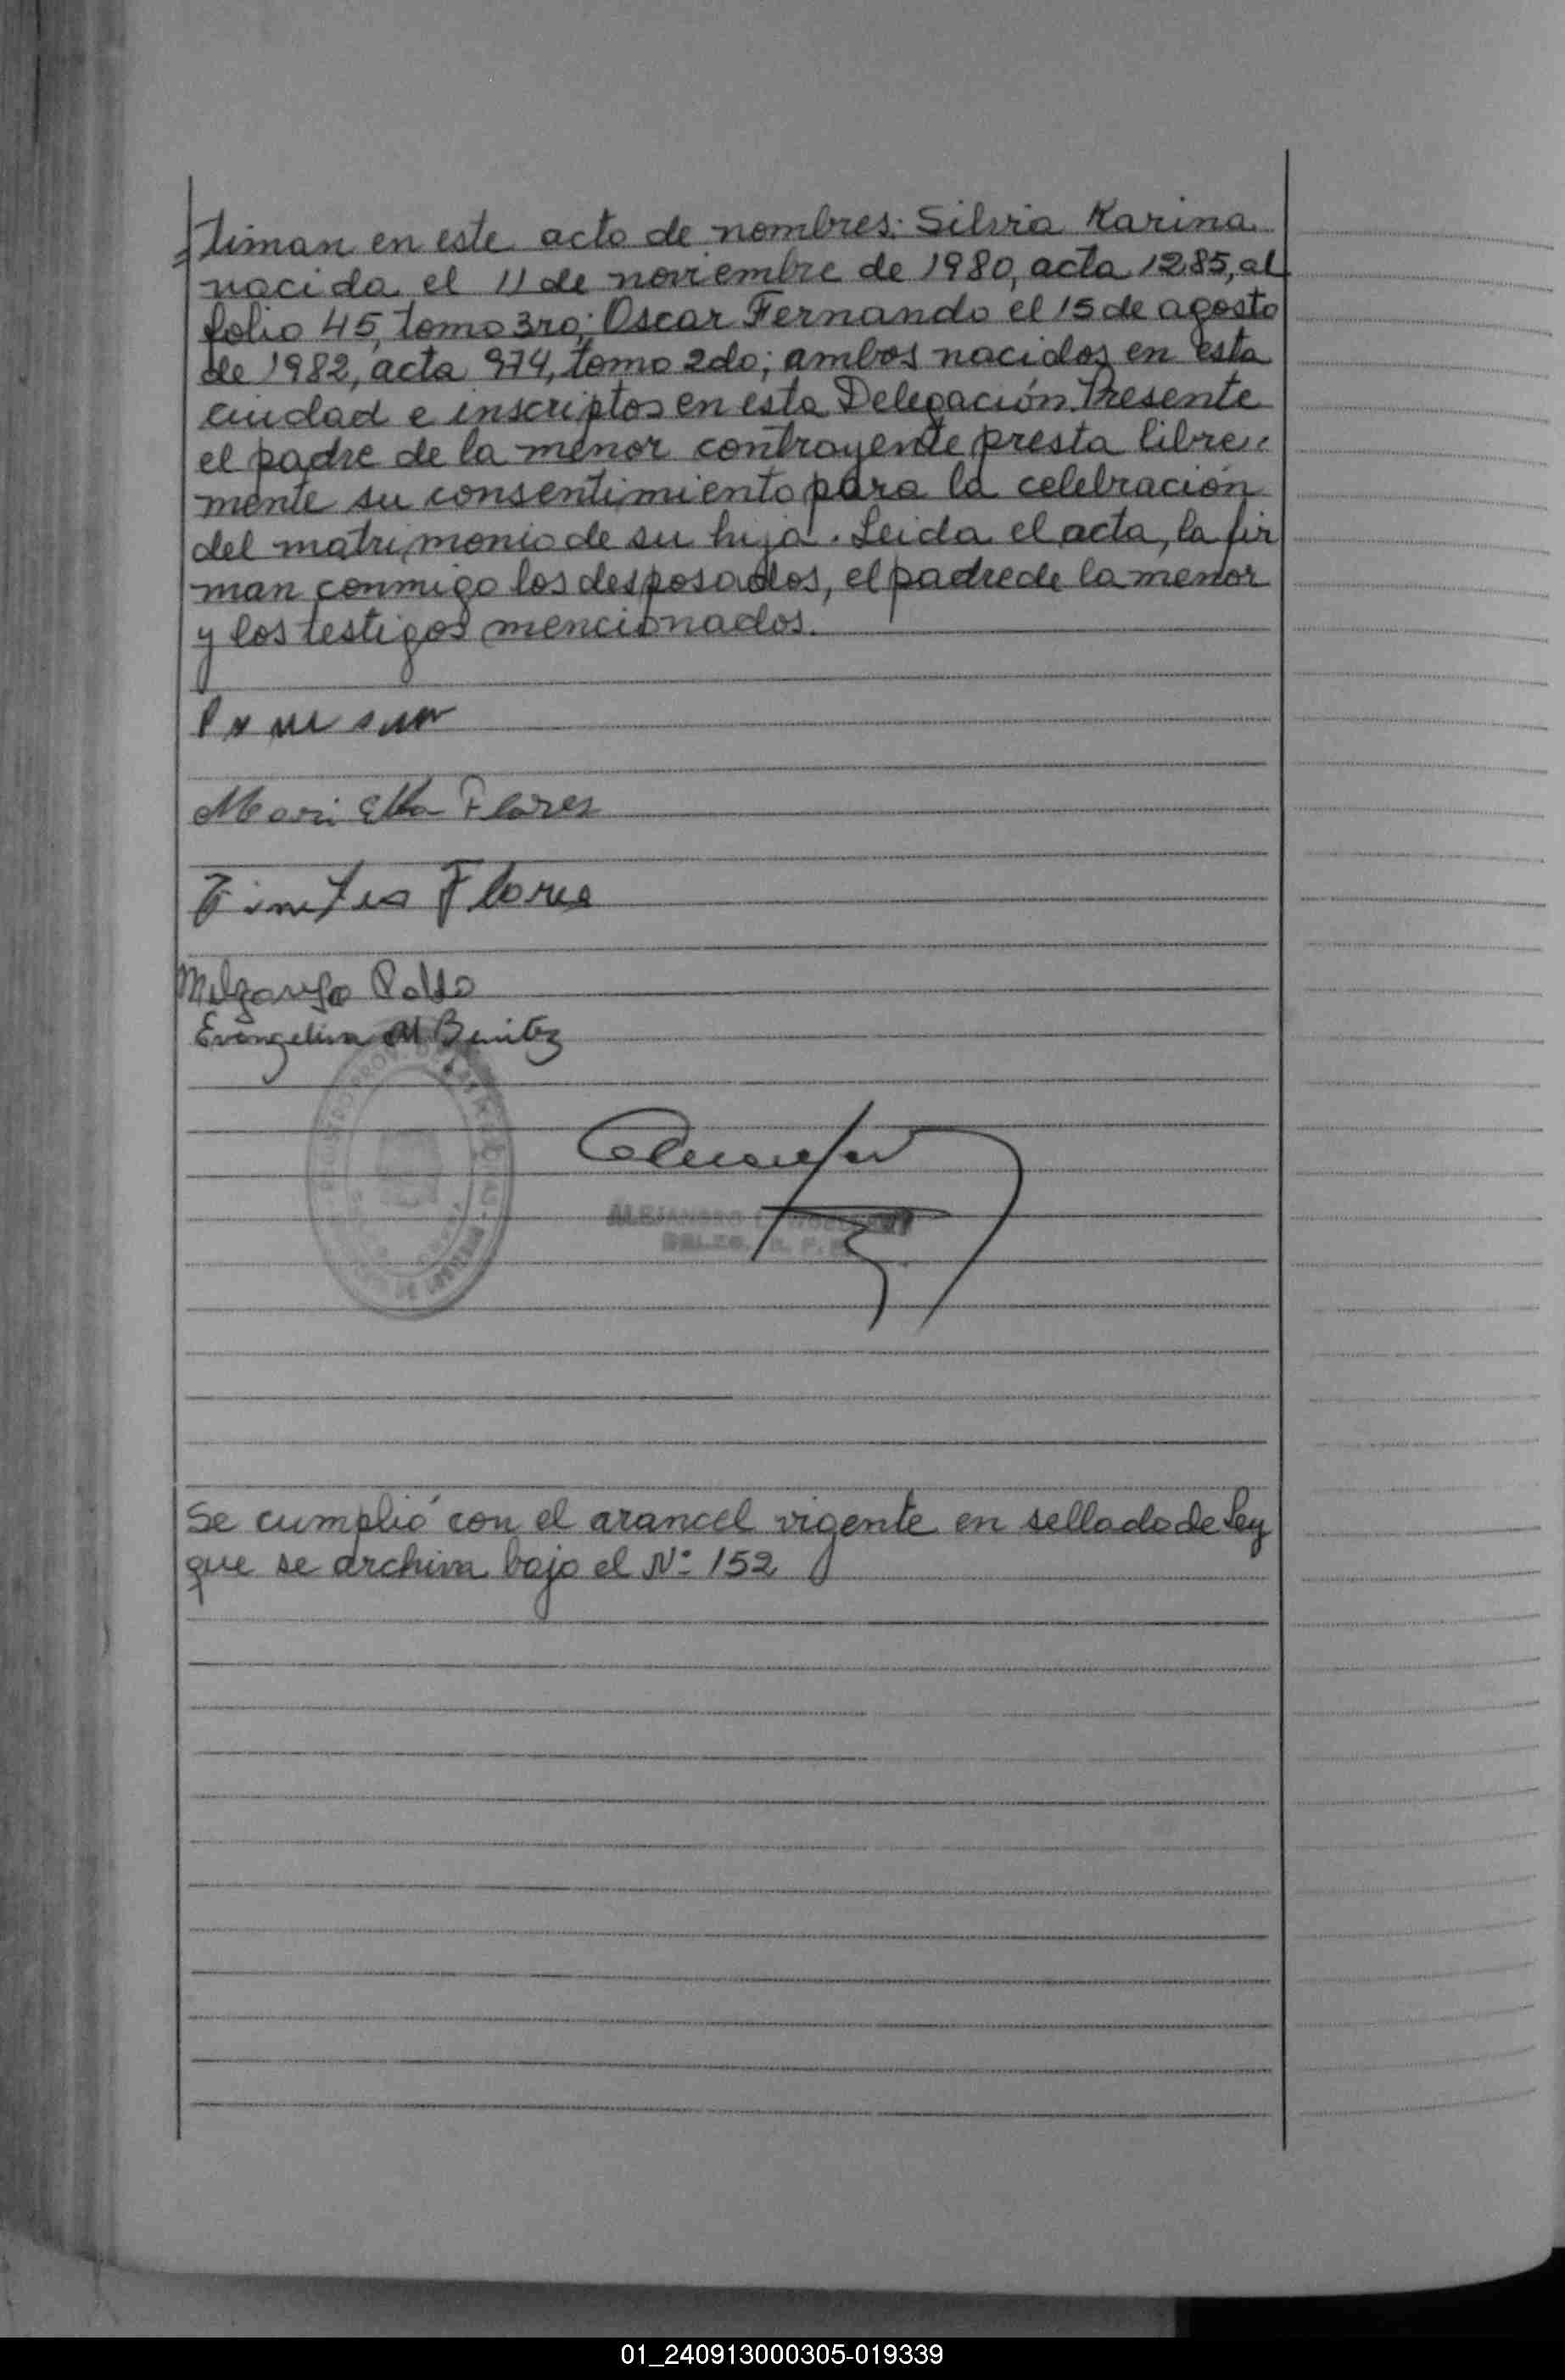 =timan en este acto de nombres: Silvia Karina
nacida el 11 de noviembre de 1980, acta 1285, al
folio 45, tomo 3ro; Oscar Fernando el 15 de agosto
de 1982, acta 974, tomo 2do; ambos nacidos en esta
ciudad e inscriptos en esta Delegación. Presente
el padre de la menor contrayente presta libre=
mente su consentimiento para la celebración
del matrimonio de su hija. Leida el acta, la fir
man conmigo los desposados, el padre de la menor
y los testigos mencionados.
Flores
Flores
Evangelina M Benitez
ALEJANDRO
Se cumplió con el arancel vigente en sellado de Ley
que se archiva bajo el Nº 152
01_240913000305-019339